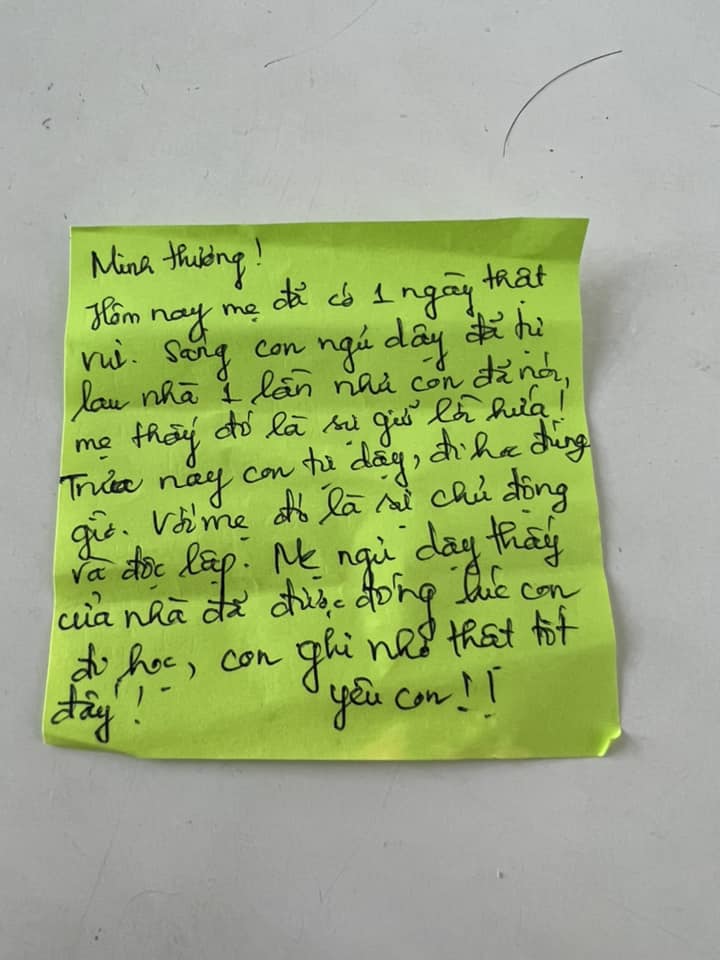 Minh thương!
Hôm nay mẹ đã có 1 ngày thật
vui. Sáng con ngủ dậy đã tự
lau nhà 1 lần như con đã nói,
mẹ thấy đó là sự giữ lời hứa!
Trưa nay con tự dậy, đi học đúng
giờ. Với mẹ đó là sự chủ động
và độc lập. Mẹ ngủ dậy thấy
cửa nhà đã được đóng lúc con
đi học, con ghi nhớ thật tốt
đấy! yêu con!!